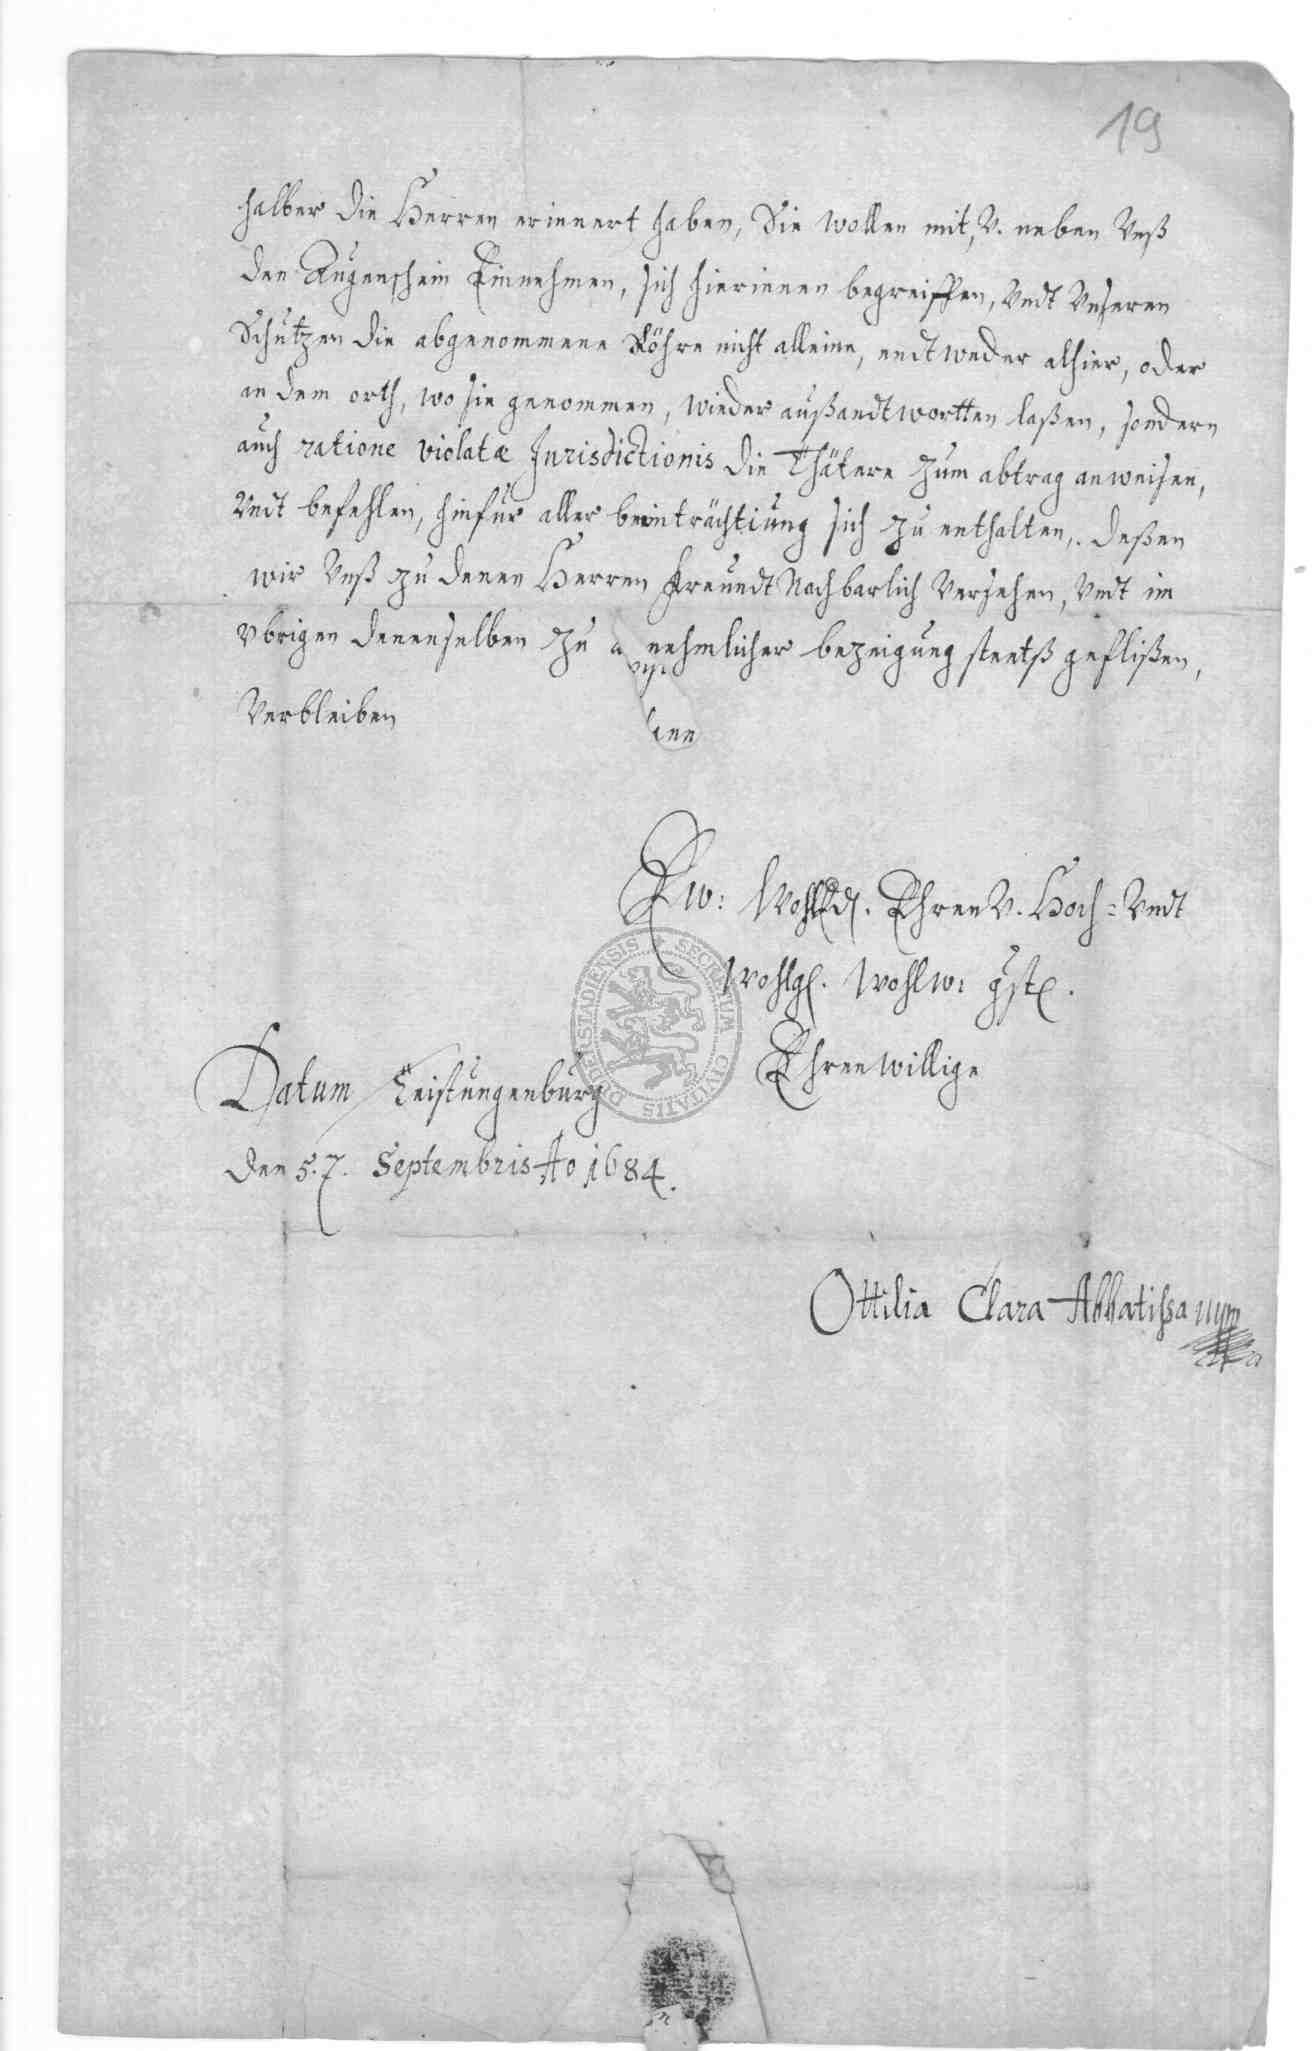 19
halber die Herren erinnert haben, Sie wollen mit, V. neben Vnß
den Augenschein Einnehmen, sich hierinnen begreiffen, Vndt Vnseren
Schützen die abgenommene Röhre nicht alleine, endtweder alhier, oder
an dem orth, wo sie genommen, wieder außandtwortten laßen, sondern
auch ratione violatæ Jurisdictionis die Thätere zum abtrag anweisen,
Vndt befehlen, hinfür aller beeinträchtiung sich zu enthalten, deßen
wir Vnß zu denen Herren freundt Nachbarlich Versehen, Vndt im
vbrigen denenselben zu a nehmlicher bezeigung steetß geflißen,
Verbleiben
Ew: WohlEd. EhrenV. Hoch- Vndt
Wohlgl. Wohlw: gste.
Ehrenwillige
Datum Teistungenburg
den 5. 7. Septembris Ao 1684.
SECRETUM CIVITATIS DUDERSTADIENSIS
Ottilia Clara Abbatissa